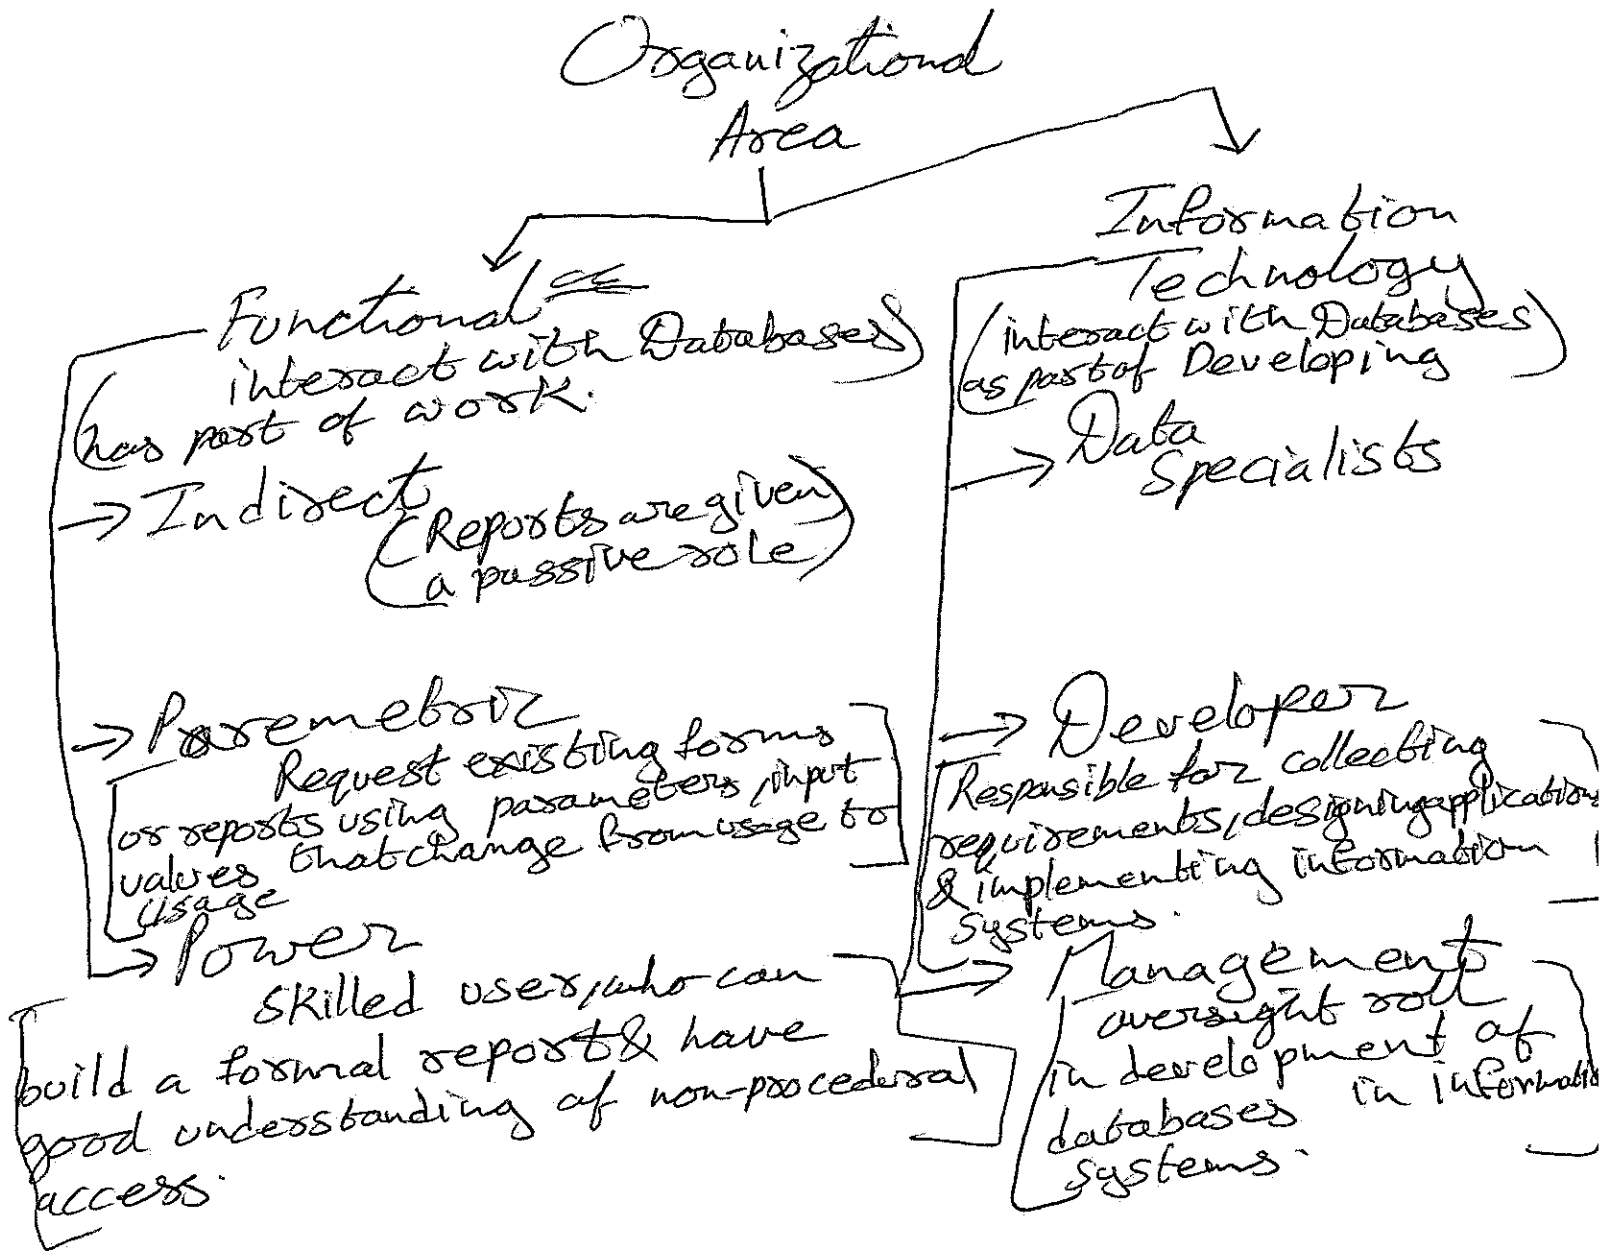 Organizational
Area
Functional
(interact with Databases)
has part of work.
→ Indirect
(Reports are given)
a passive role
→ Paremetric
Request existing forms
or reports using parameters, input
values that change from usage to
usage
→ Power
skilled user, who can
build a formal report & have
good understanding of non-procederal
access.
Information
Technology
(interact with Databases)
as part of Developing
→ Data
Specialists
→ Developer
Responsible for collecting
requirements, designing applications
& implementing information
systems.
→ Management
oversight roll
in development of
databases in informatio
systems.